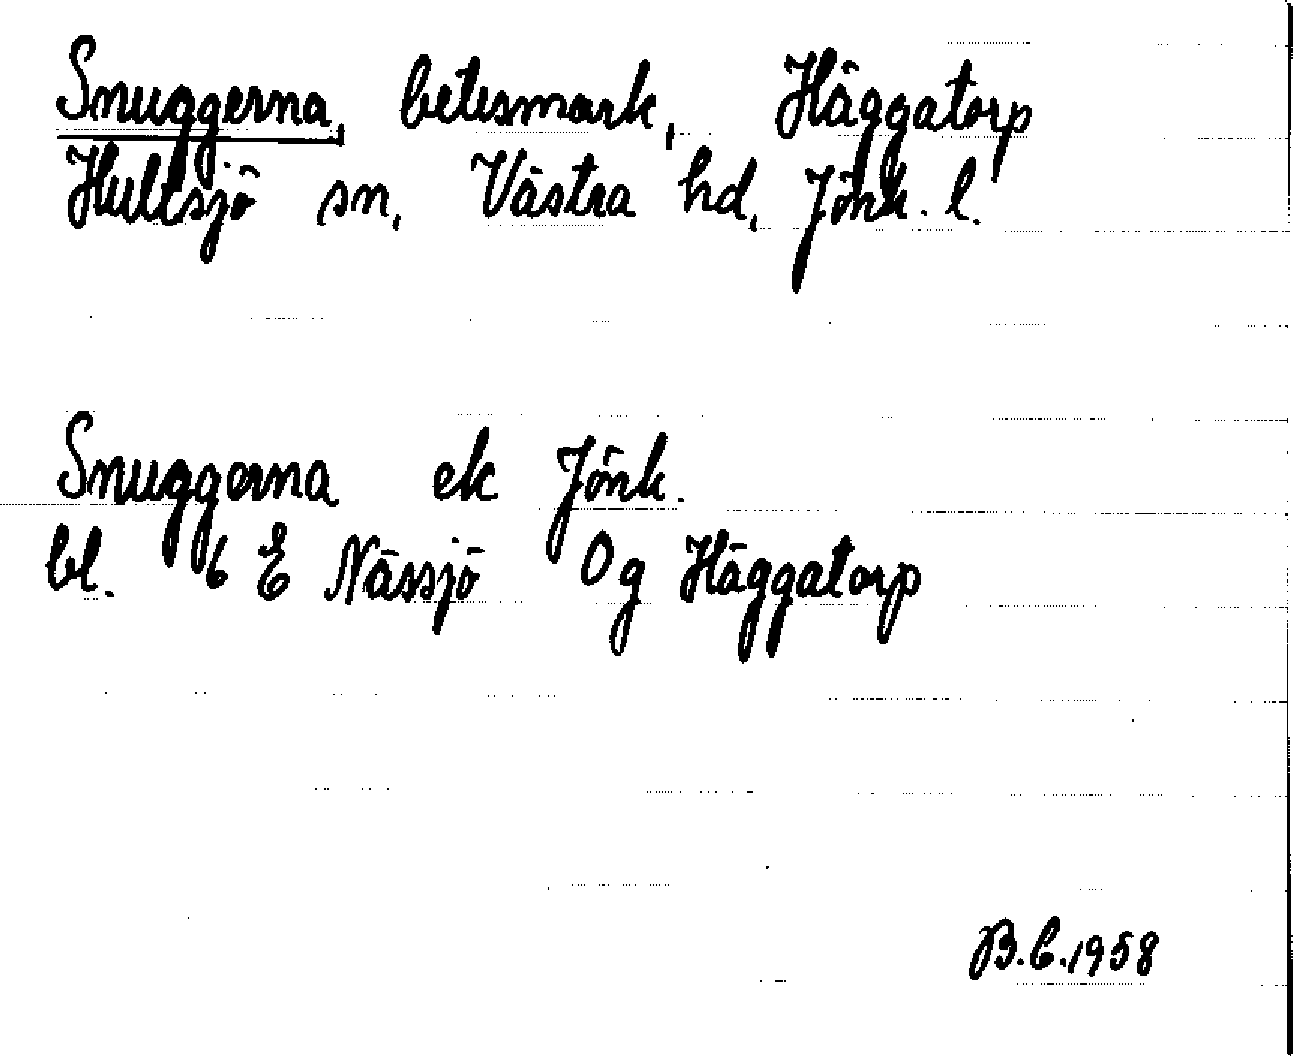 Snuggerna, betesmark, Häggatorp
Hultsjö sn, Västra hd, Jönk. l.
Snuggerna ek Jönk.
bl. 6 E Nässjö Og Häggatorp
B.C.1958